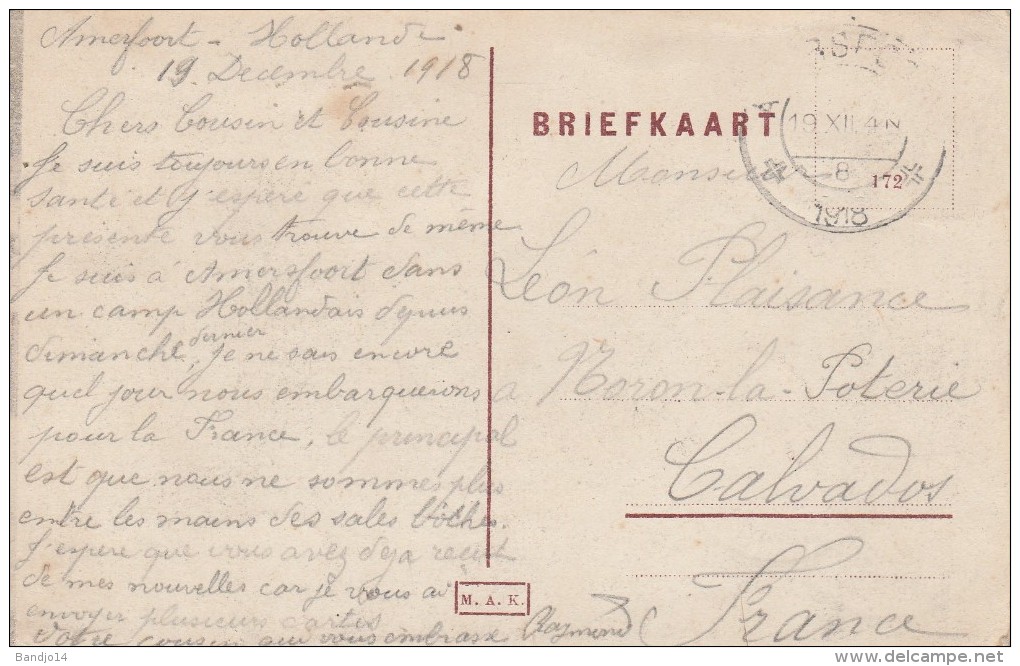 Amerfoort - Hollande
19 Decembre 1918
Chers Cousin et Cousine
Je suis toujours en bonne
santé et j'espère que cette
présente vous trouve de même
Je suis à Amersfoort dans
un camp Hollandais depuis
dimanche dernier, je ne sais encore
quel jour nous embarquerons
pour la France, le principal
est que nous ne sommes plus
entre les mains des sales bôches.
J'espère que vous avez déja recut
de mes nouvelles car je vous ai
envoyer plusieurs cartes
Votre cousin qui vous embrasse Raymond
BRIEFKAART
19 XII 4 N
8
1918
172
Monsieur
Léon Plaisance
a Noron-la-Poterie
Calvados
France
M. A. K.
Bandjo14
delcampe.net